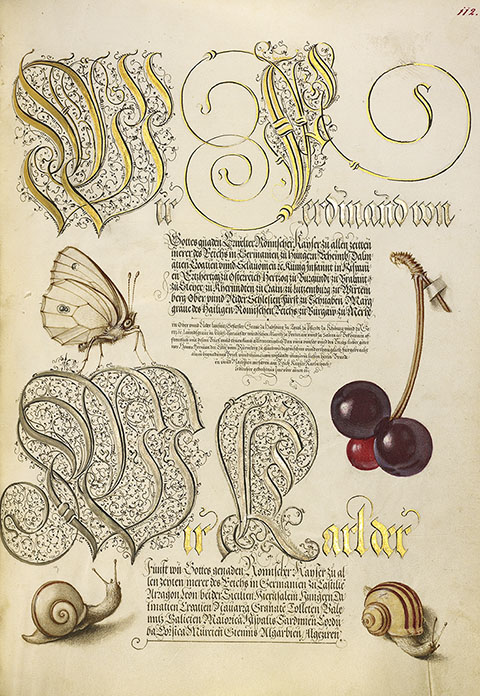 112.
Wir Ferdinand von
Gottes gnaden Erwelter Römischer Kayser zu allen zeitten
merer des Reichs in Germanien zu Hungern Beheimb Dalm
atien Croatien vnnd Sclauonien &c Künig Infannt in Hispani
en Ertzhertzog zu Osterreich Hertzog zu Burgundi zu Brabannt
zu Steyr zu Kherrnndten zu Crain zu Lutzemburg zu Wirtem
berg Ober vnnd Nider Schlesien Fürst zu Schwaben Marg
graue des Heiligen Römischen Reichs zu Burgaw zu Merhe
Wir Karl der
Funfft von Gottes genaden Römischer Kayser zu al
len zeyten merer des Reichs in Germanien zu Castilie
Arragon Leon beider Sicilien Hierusalem Hungern Da
lmatien Croatien Nauarra Granate Tolleten Vale
nntz Galicien Maiorica Hispalis Sardinien Cordu
ba Corsica Murcien Giennis Algarbien Algeziren